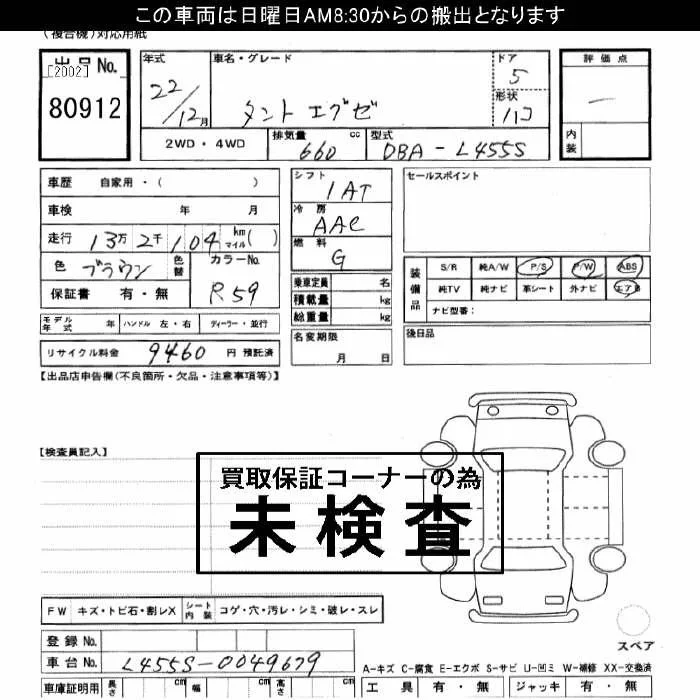 この車両は日曜日AM8:30からの搬出となります
(複合機)対応用紙
出品No.
[2002]
80912
年式
22/12月
車名・グレード
タント エグゼ
ドア
5
形状
ハコ
評価点
―
内装
2WD・4WD
排気量 660 cc
型式 DBA-L455S
車歴 自家用・( )
車検 年 月
走行 13万2千104 km マイル( )
色 ブラウン 色替 カラーNo. R59
保証書 有・無
シフト 1AT
冷房 AAC
燃料 G
乗車定員 名
積載量 kg
総重量 kg
セールスポイント
装備品
S/R 純A/W P/S P/W ABS
純TV 純ナビ 革シート 外ナビ エアB
ナビ型番:
モデル年式 年 ハンドル 左・右 ディーラー・並行
名変期限
月 日
後日品
リサイクル料金 9460 円 預託済
【出品店申告欄(不良箇所・欠品・注意事項等)】
【検査員記入】
買取保証コーナーの為
未検査
FW キズ・トビ石・割レX シート内装 コゲ・穴・汚レ・シミ・破レ・スレ
スペア
登録No.
車台No. L455S-0049679
A-キズ C-腐食 E-エクボ S-サビ U-凹ミ W-補修 XX-交換済
車庫証明用 長さ cm 幅 cm 高さ cm
工具 有・無 ジャッキ 有・無